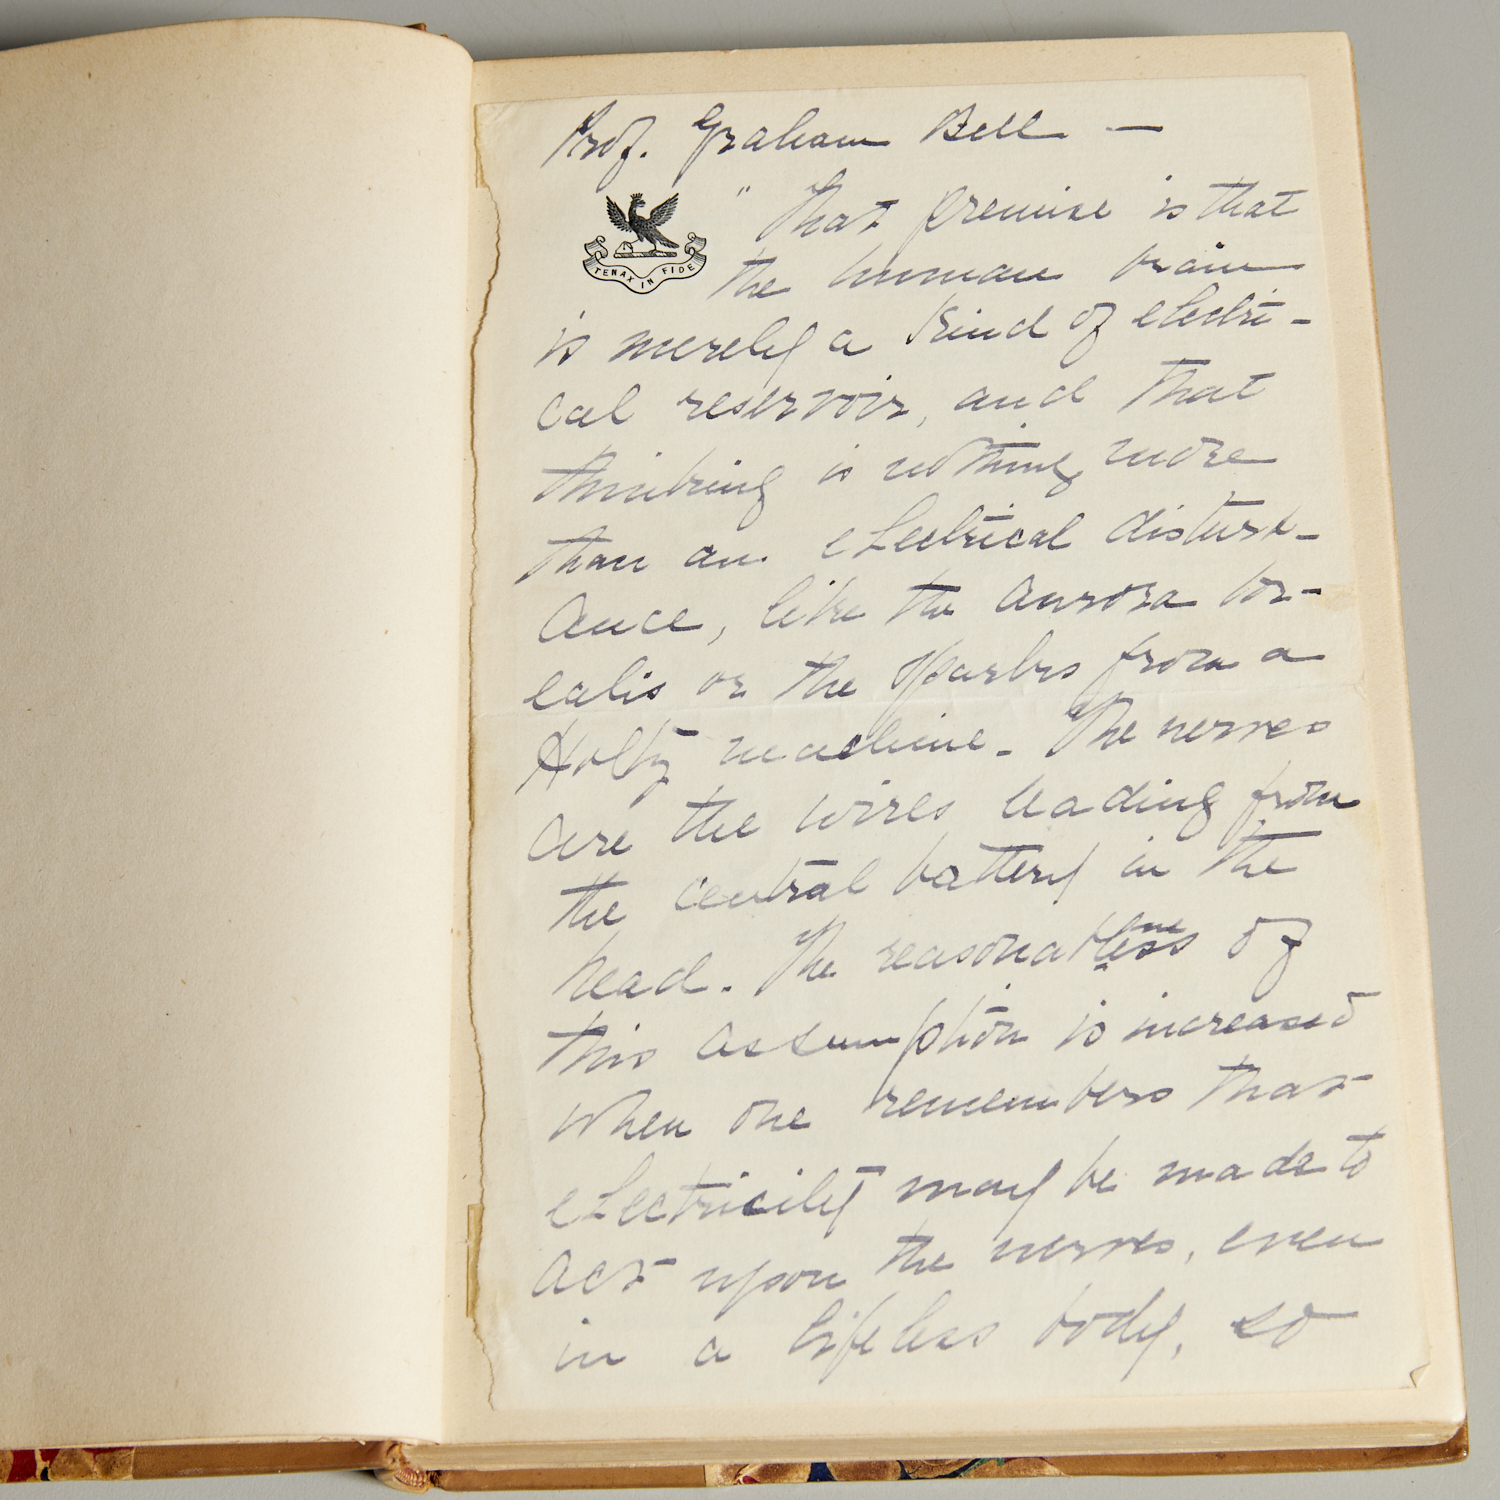 Prof. Graham Bell —
TENAX IN FIDE
" That premise is that
the human brain
is merely a kind of electri-
cal reservoir, and that
thinking is nothing more
than an electrical disturb-
ance, like the aurora bor-
ealis or the sparks from a
Holtz machine. The nerves
are the wires leading from
the central battery in the
head. The reasonableness of
this assumption is increased
when one remembers that
electricity may be made to
act upon the nerves, even
in a lifeless body, so